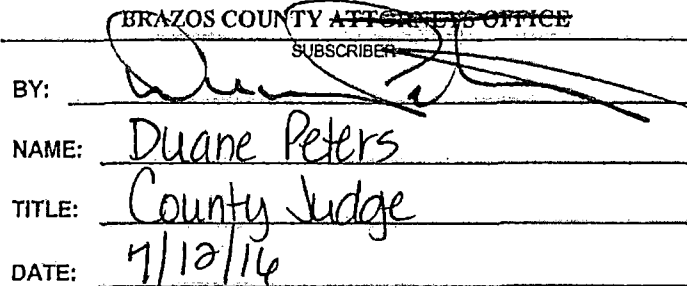 BRAZOS COUNTY ATTORNEYS OFFICE
SUBSCRIBER
BY:
NAME: Duane Peters
TITLE: County Judge
DATE: 7/12/16